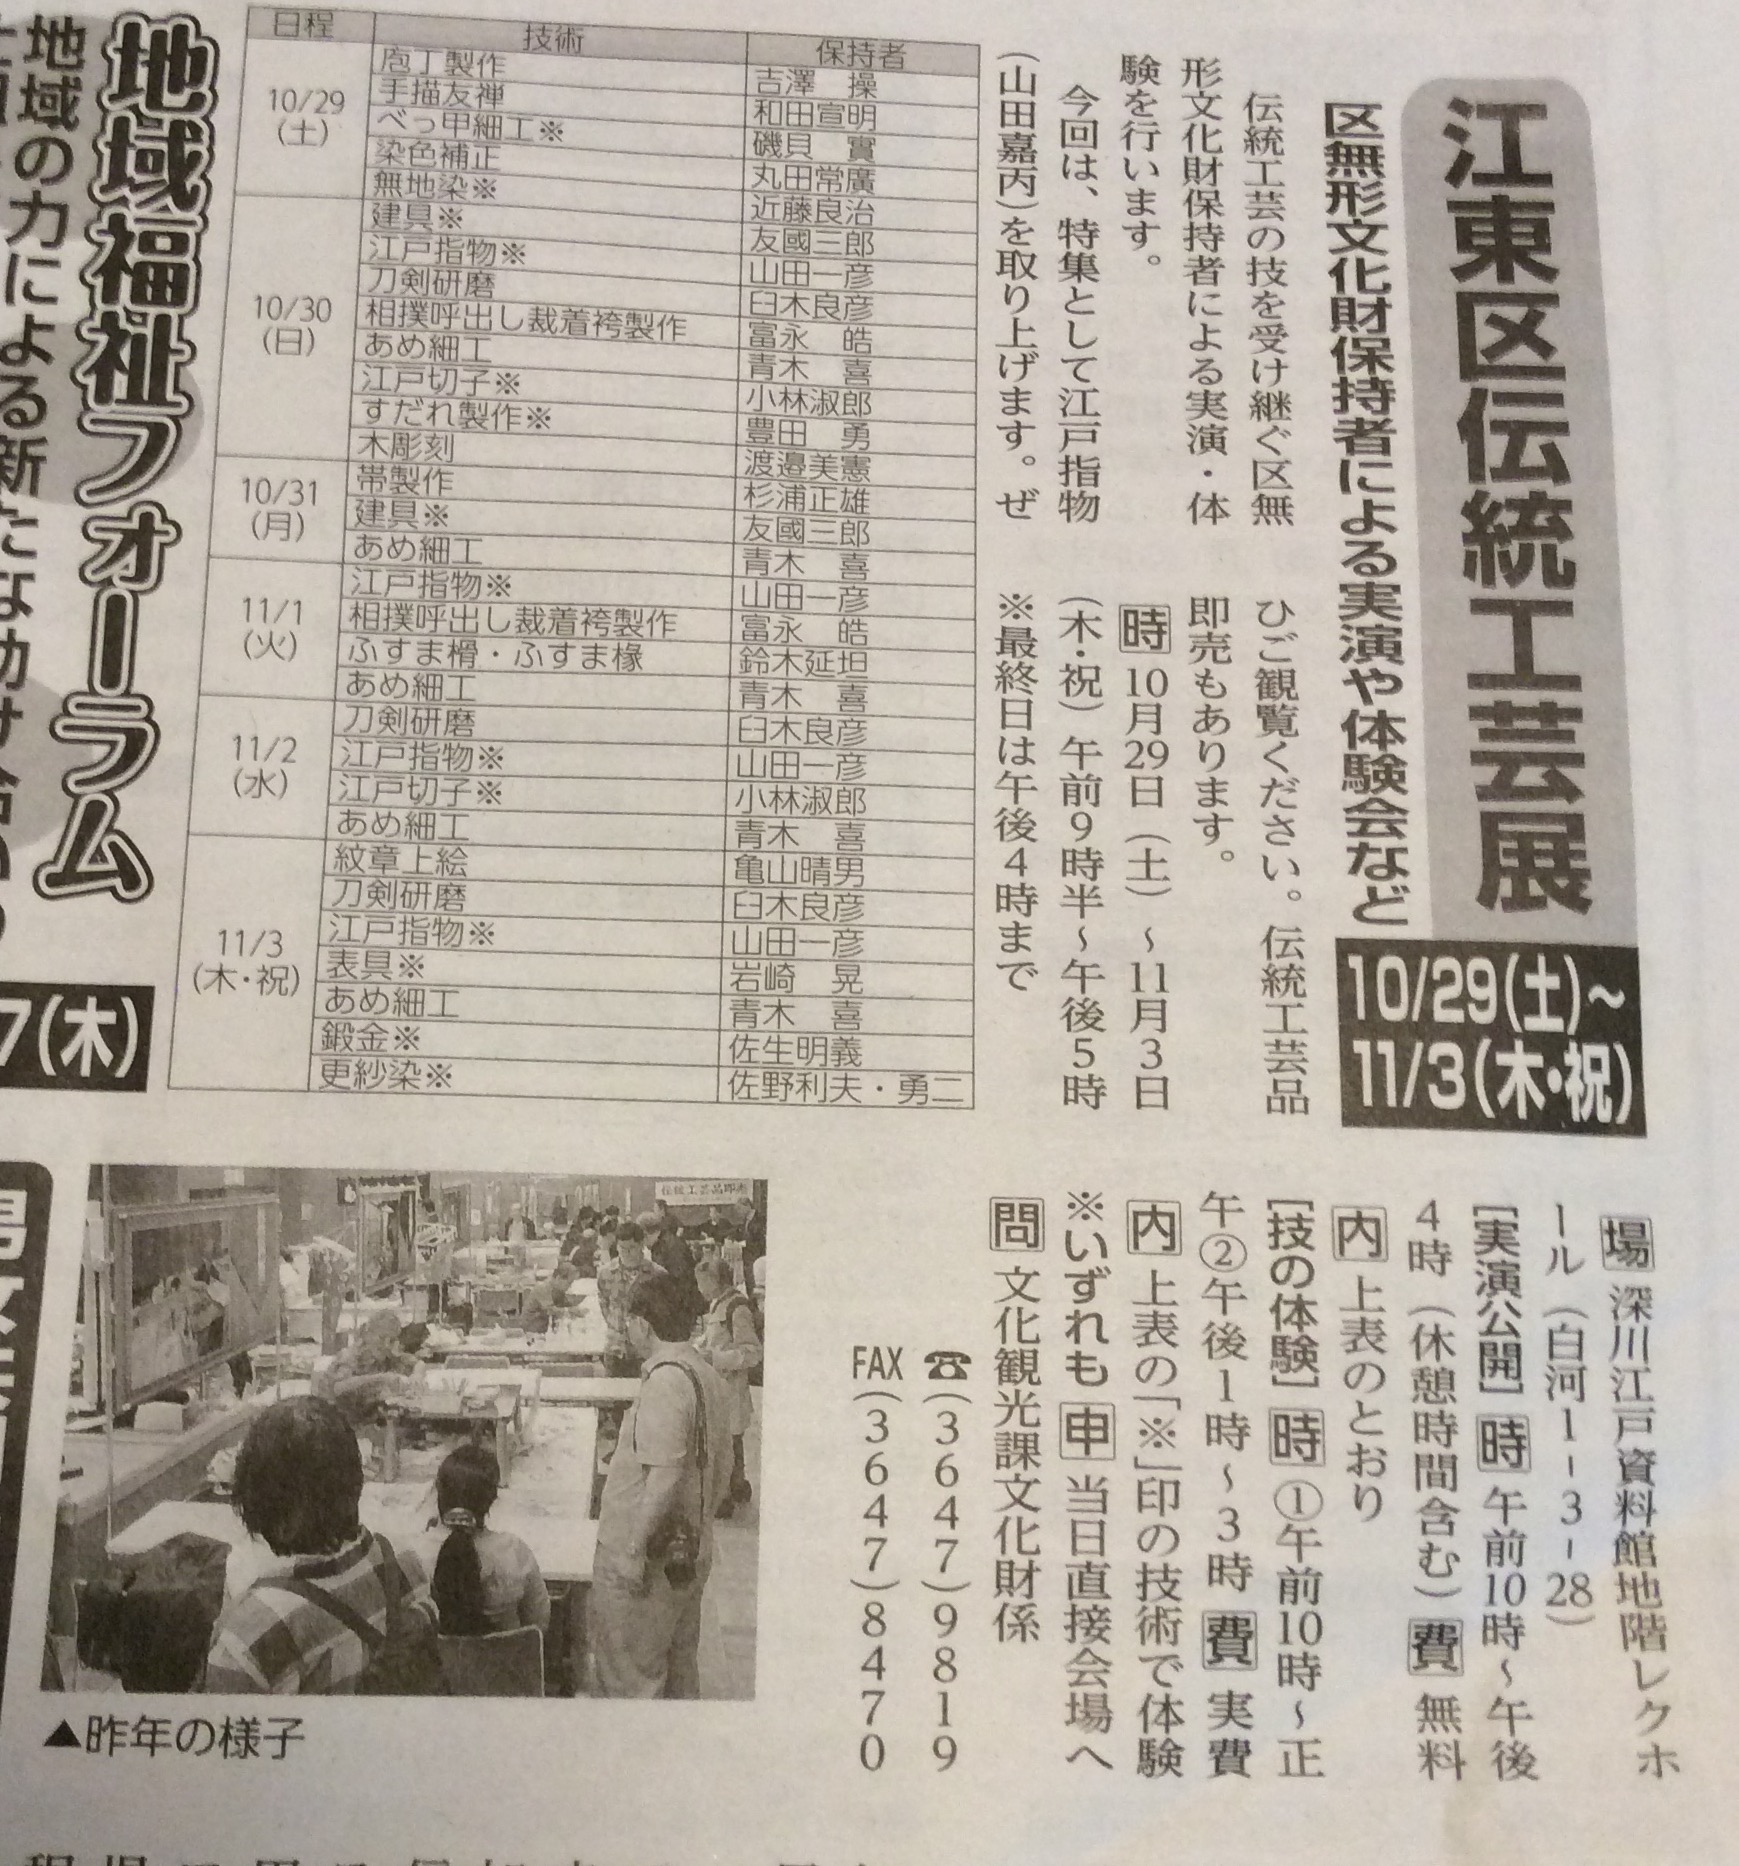 江東区伝統工芸展
区無形文化財保持者による実演や体験会など
10/29(土)～
11/3(木・祝)
伝統工芸の技を受け継ぐ区無
形文化財保持者による実演・体
験を行います。
今回は、特集として江戸指物
(山田嘉丙)を取り上げます。ぜ
ひご観覧ください。伝統工芸品
即売もあります。
時 10月29日(土)～11月3日
(木・祝)午前9時半～午後5時
※最終日は午後4時まで
場 深川江戸資料館地階レクホ
ール(白河1-3-28)
[実演公開] 時 午前10時～午後
4時(休憩時間含む) 費 無料
内 上表のとおり
[技の体験] 時 ①午前10時～正
午②午後1時～3時 費 実費
内 上表の「※」印の技術で体験
※いずれも 申 当日直接会場へ
問 文化観光課文化財係
☎(3647)9819
FAX(3647)8470
日程 技術 保持者
10/29(土)
庖丁製作 吉澤 操
手描友禅 和田宣明
べっ甲細工※ 磯貝 實
染色補正 丸田常廣
無地染※ 近藤良治
10/30(日)
建具※ 友國三郎
江戸指物※ 山田一彦
刀剣研磨 臼木良彦
相撲呼出し裁着袴製作 富永 皓
あめ細工 青木 喜
江戸切子※ 小林淑郎
すだれ製作※ 豊田 勇
木彫刻 渡邉美憲
10/31(月)
帯製作 杉浦正雄
建具※ 友國三郎
あめ細工 青木 喜
11/1(火)
江戸指物※ 山田一彦
相撲呼出し裁着袴製作 富永 皓
ふすま榾・ふすま椽 鈴木延坦
あめ細工 青木 喜
11/2(水)
刀剣研磨 臼木良彦
江戸指物※ 山田一彦
江戸切子※ 小林淑郎
あめ細工 青木 喜
11/3(木・祝)
紋章上絵 亀山晴男
刀剣研磨 臼木良彦
江戸指物※ 山田一彦
表具※ 岩崎 晃
あめ細工 青木 喜
鍛金※ 佐生明義
更紗染※ 佐野利夫・勇二
▲昨年の様子
地域福祉フォーラム
地域の力による新たな助け合いの
7(木)